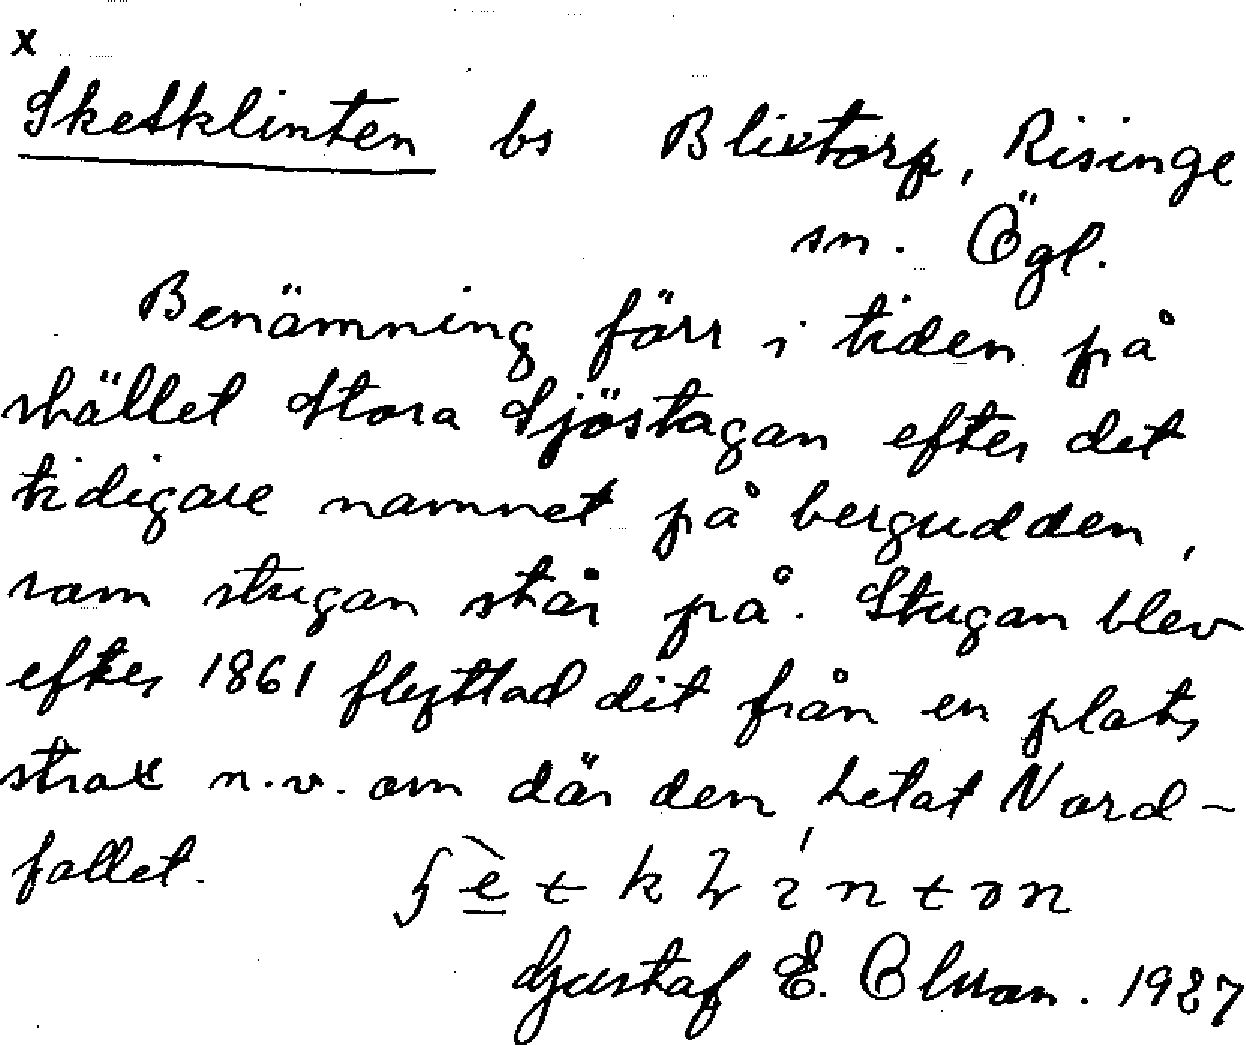 x
Sketklinten bs Blixtorp, Risinge
sn. Ögl.
Benämning förr i tiden på
stället Stora Sjöstugan efter det
tidigare namnet på bergudden,
som stugan står på. Stugan blev
efter 1861 flyttad dit från en plats
strax n.v. om där den hetat Nord-
fallet.
Gustaf E. 1927